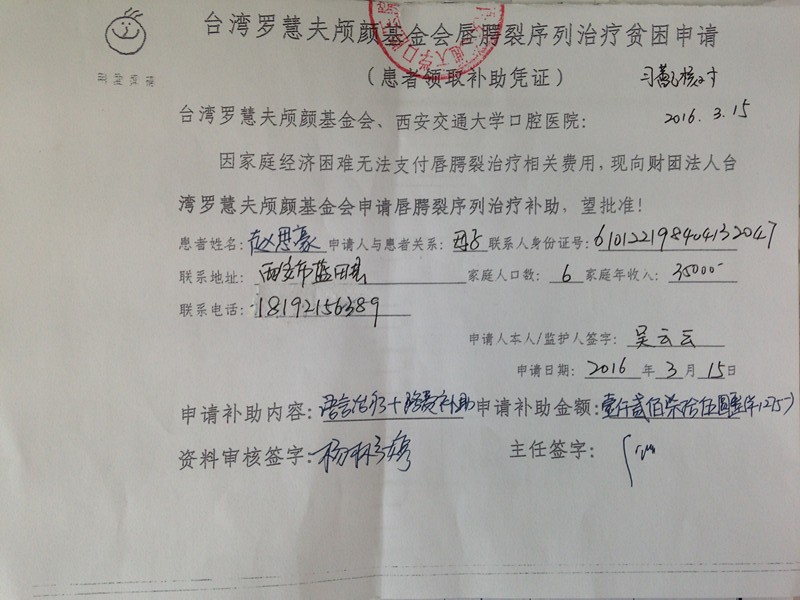 台湾罗慧夫颅颜基金会唇腭裂序列治疗贫困申请
(患者领取补助凭证)
2016.3.15
台湾罗慧夫颅颜基金会、西安交通大学口腔医院:
因家庭经济困难无法支付唇腭裂治疗相关费用,现向财团法人台
湾罗慧夫颅颜基金会申请唇腭裂序列治疗补助,望批准!
患者姓名:赵思豪 申请人与患者关系:母子 联系人身份证号:610122198404132047
联系地址:西安市蓝田县 家庭人口数:6 家庭年收入:35000
联系电话:18192156389
申请人本人/监护人签字:吴云云
申请日期:2016年3月15日
申请补助内容:语言治疗+路费补助 申请补助金额:壹仟贰佰柒拾伍圆整(¥1275)
资料审核签字: 主任签字: